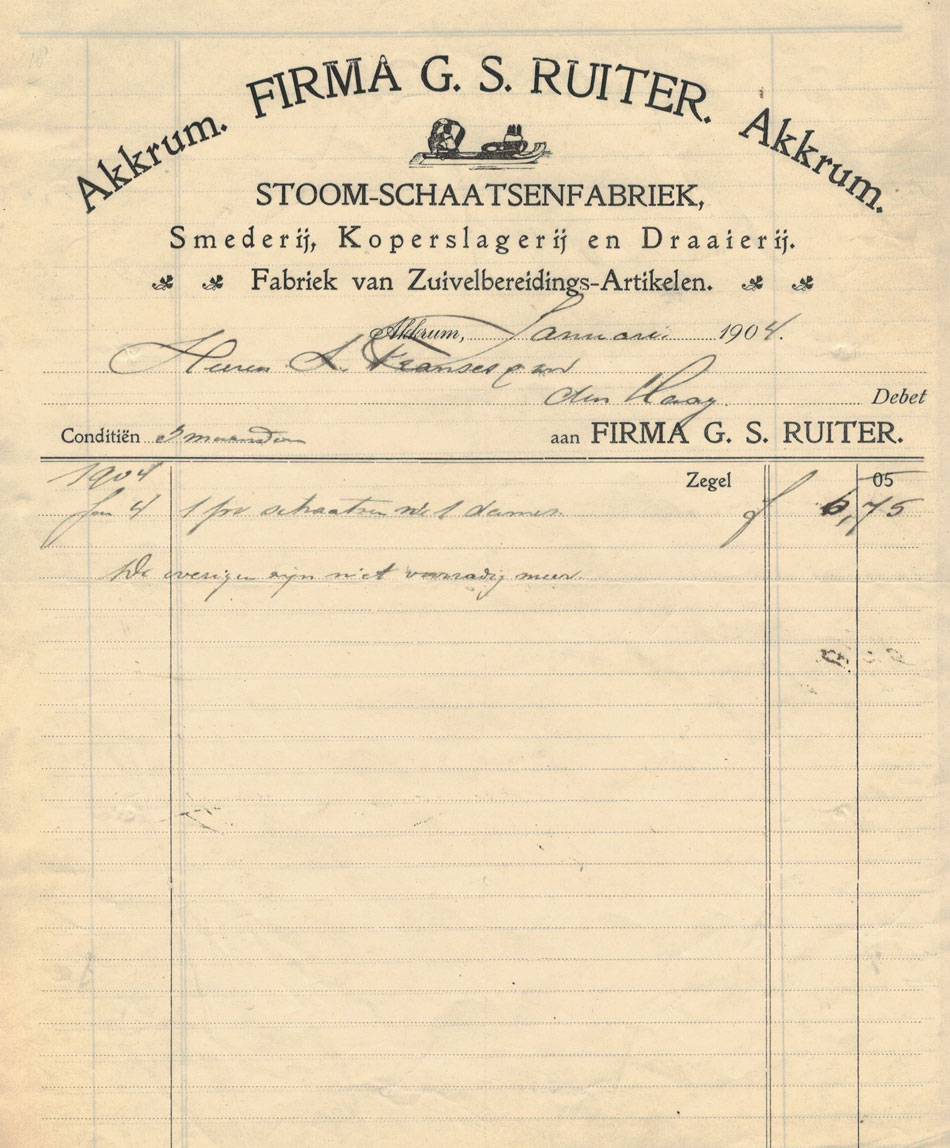 Akkrum. FIRMA G. S. RUITER. Akkrum.
STOOM-SCHAATSENFABRIEK,
Smederij, Koperslagerij en Draaierij.
Fabriek van Zuivelbereidings-Artikelen.
Akkrum, Januari 1904.
Heeren L. Franses
den Haag Debet
Conditiën 3 maanden aan FIRMA G. S. RUITER.
1904 Zegel 05
Jan 4 1 pr schaatsen No 1 dames f 6,75
De overigen zijn niet voorradig meer